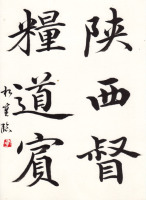 陝西督
糧道賓